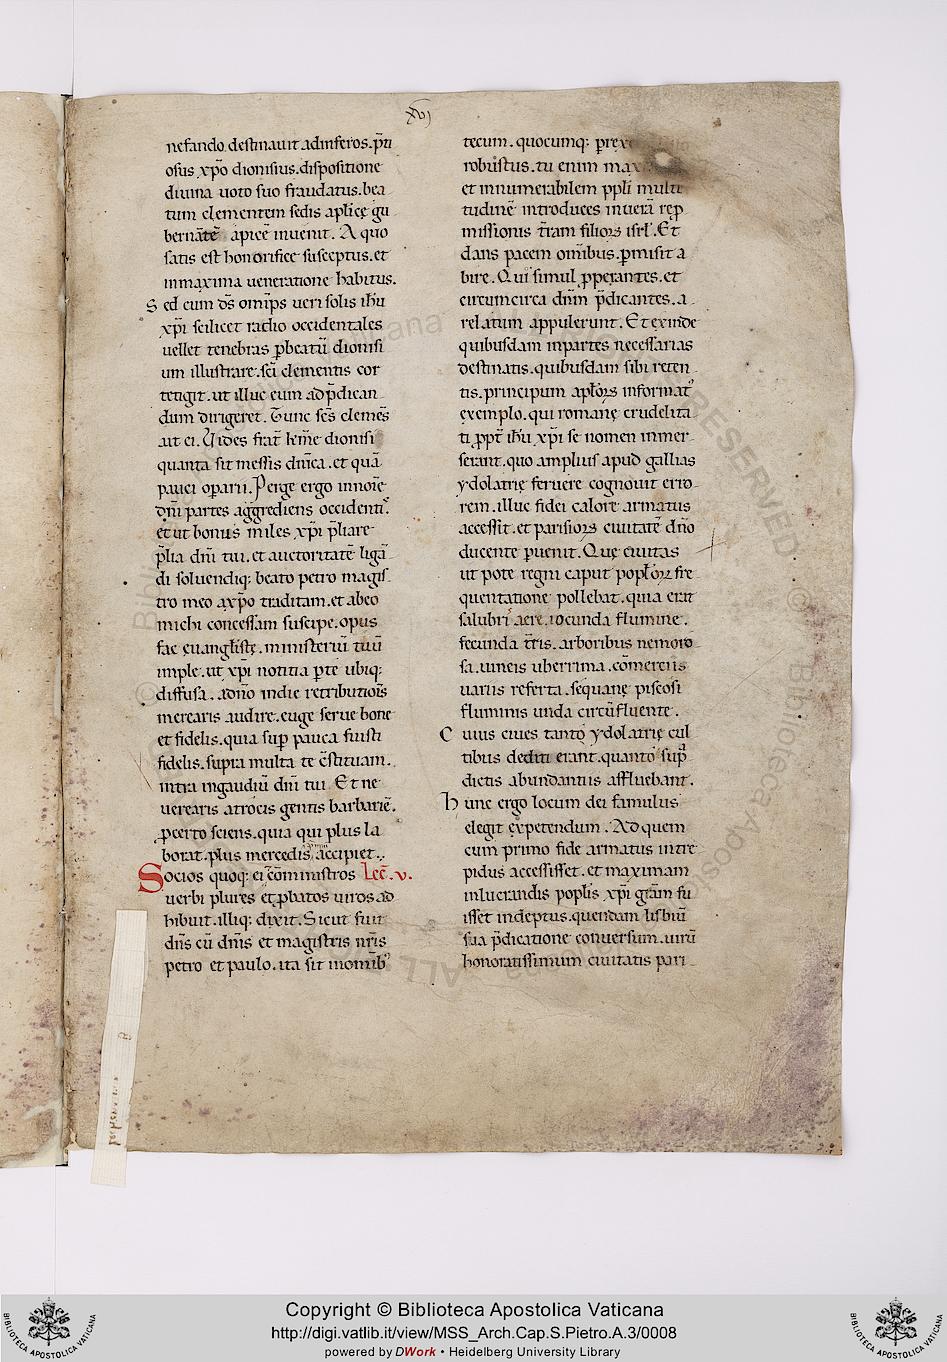 xvj
nefando destinauit adinferos. p̃ti
osus xp̃o dionisius. dispositione
diuina uoto suo fraudatus. bea
tum clementem sedis aplicę gu
bernatẽ apicẽ inuenit. A quo
satis est honorifice susceptus. et
inmaxima ueneratione habitus.
Sed cum d̃s omip̃s ueri solis ih̃u
xp̃i scilicet radio occidentales
uellet tenebras ꝑbeatũ dionisi
um illustrare. sc̃i clementis cor
tetigit. ut illuc eum ad p̃dican
dum dirigeret. Tunc sc̃s clemẽs
ait ei. Vides frat̃ km̃e dionisi
quanta sit messis dñica. et quã
pauci oꝑarii. Perge ergo innoĩe
dñi partes aggrediens occidenti.
et ut bonus miles xp̃i p̃liare
p̃lia dñi tui. et auctoritatẽ ligã
di soluendiq; beato petro magis
tro meo axp̃o traditam. et abeo
michi concessam suscipe. opus
fac euangl̃istę. ministeriũ tuũ
imple. ut xp̃i notitia ꝑte ubiq;
diffusa. adñо indie retributiõis
merearis audire. euge serue bone
et fidelis. quia suꝑ pauca fuisti
fidelis. supra multa te c̃stituam.
intra ingaudiũ dñi tui. Et ne
uerearis atrocis gentis barbariẽ.
ꝓcerto sciens. quia qui plus la
borat. plus mercedis accipiet.
Socios quoq; ei cõministros Lec̃. v.
uerbi plures et ꝓbatos uiros ad
hibuit. illiq; dixit. Sicut fuit
dñs cũ dñis et magistris nr̃is
petro et paulo. ita sit inomĩb'
tecum. quocumq;
robustus. tu enim
et innumerabilem ppl̃i multi
tudinẽ introduces inuerã reꝓ
missionis t̃ram filioꝝ isrl̃. Et
dans pacem omĩbus. ꝑmisit a
bire. Qui simul ꝓꝑantes. et
circumcirca dñm p̃dicantes. a
relatum appulerunt. Et exinde
quibusdam inpartes necessarias
destinatis. quibusdam sibi reten
tis. principum apl̃oꝝ informat'
exemplo. qui romanę crudelita
ti ꝓpt̃ ih̃u xp̃i se nomen inmer
serant. quo amplius apud gallias
ydolatrię feruere cognouit erro
rem. illuc fidei calore armatus
accessit. et parisioꝝ ciuitatẽ dño
ducente ꝑuenit. Quę ciuitas
ut pote regni caput popl̃oꝝ fre
quentatione pollebat. quia erat
salubri aere. iocunda flumine.
fecunda t̃ris. arboribus nemoro
sa. uineis uberrima. cõmerciis
uariis referta. sequanę piscosi
fluminis unda circũfluente.
Cuius ciues tanto ydolatrię cul
tibus dediti erant. quanto sup̃
dictis abundantiis affluebant.
Hunc ergo locum dei famulus
elegit expetendum. Ad quem
cum primo fide armatus intre
pidus accessisset. et maximam
inlucrandis popl̃is xp̃i grãm fu
isset indeptus. quendam lisbiũ
sua p̃dicatione conuersum. uirũ
honoratissimum ciuitatis pari
Copyright © Biblioteca Apostolica Vaticana
http://digi.vatlib.it/view/MSS_Arch.Cap.S.Pietro.A.3/0008
powered by DWork • Heidelberg University Library
BIBLIOTECA APOSTOLICA VATICANA
BIBLIOTECA APOSTOLICA VATICANA